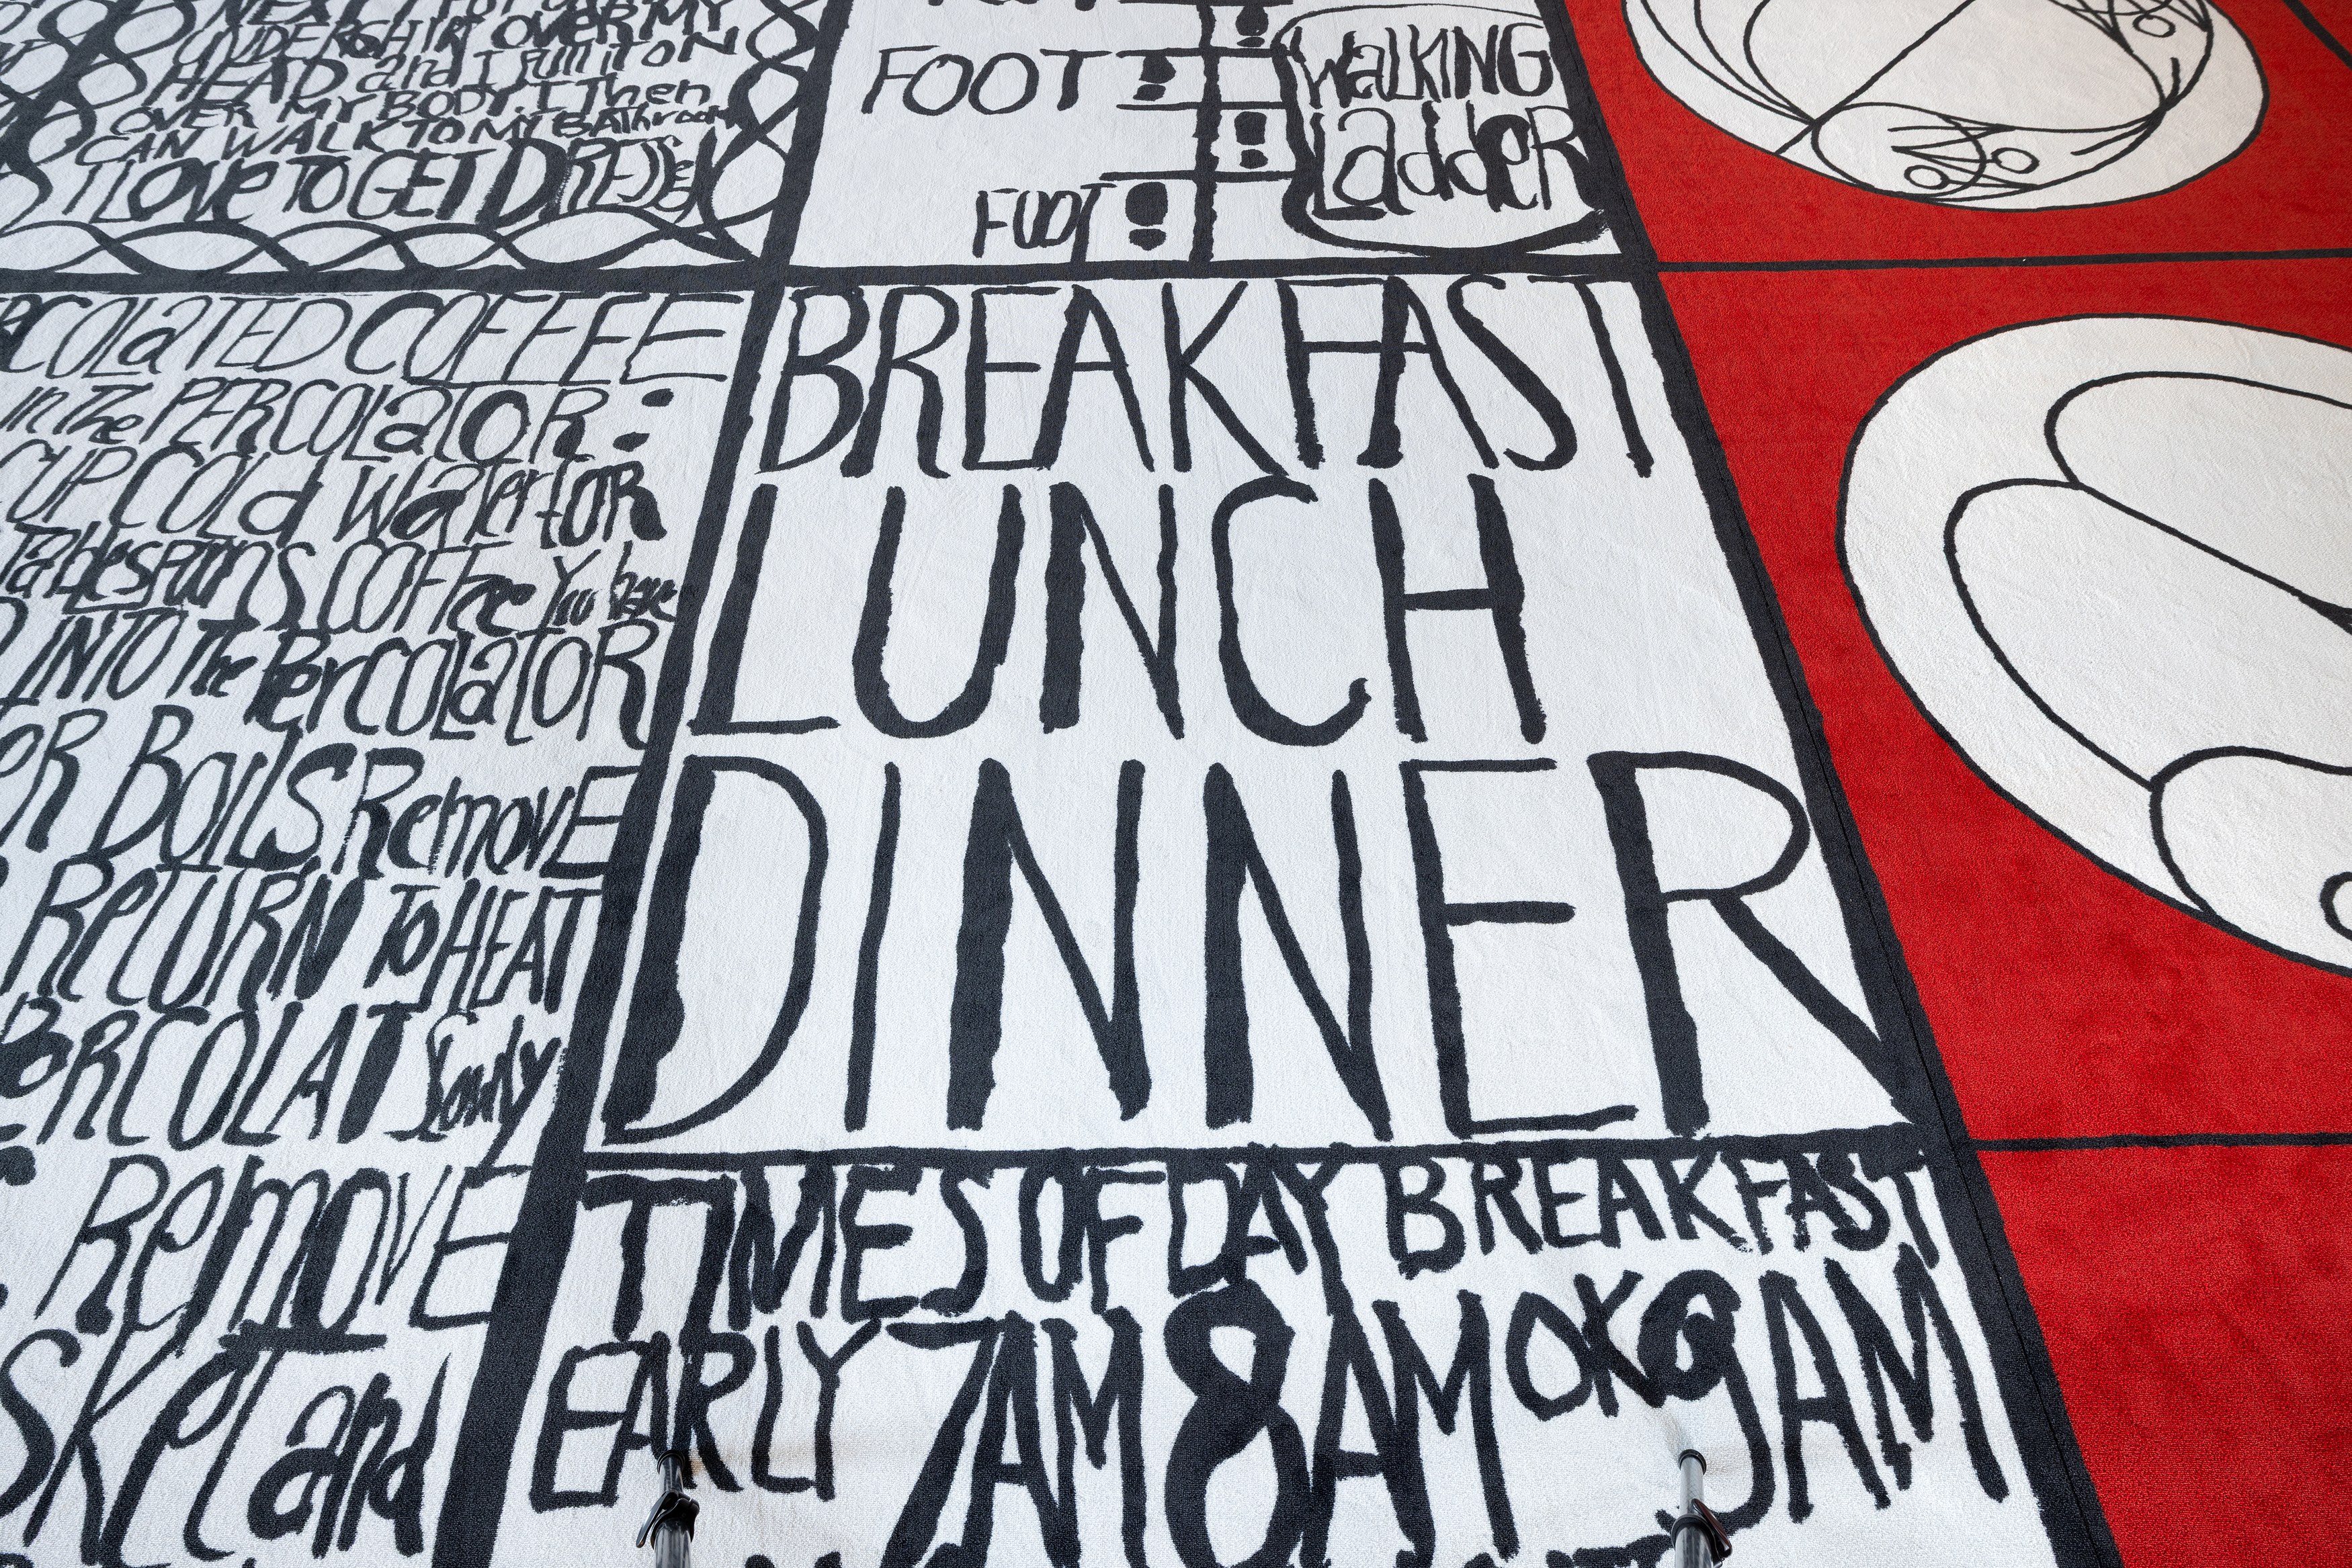 NEXT
UNDERSHIRT OVER MY
HEAD and I Pull iT ON
OVER MY BODY. I Then
CAN WALK TO MY BAThroom
I LOVe TO GET DRESSed
FOOT
WaLKING
LaddeR
FOOT
COLaTED COFFEE
in The PERCOLaTOR:
CUP COLd WaTer foR
TablespoonS COFFee You have
INTO The PerCOLaTOR
OR BoiLS RemovE
ReTURN To HEAT
PeRCOLAT
RemovE
SKeT and
BREAKFAST
LUNCH
DINNER
TIMES OF DAY BREAKFAST
EARLY 7AM 8AM OK 9AM